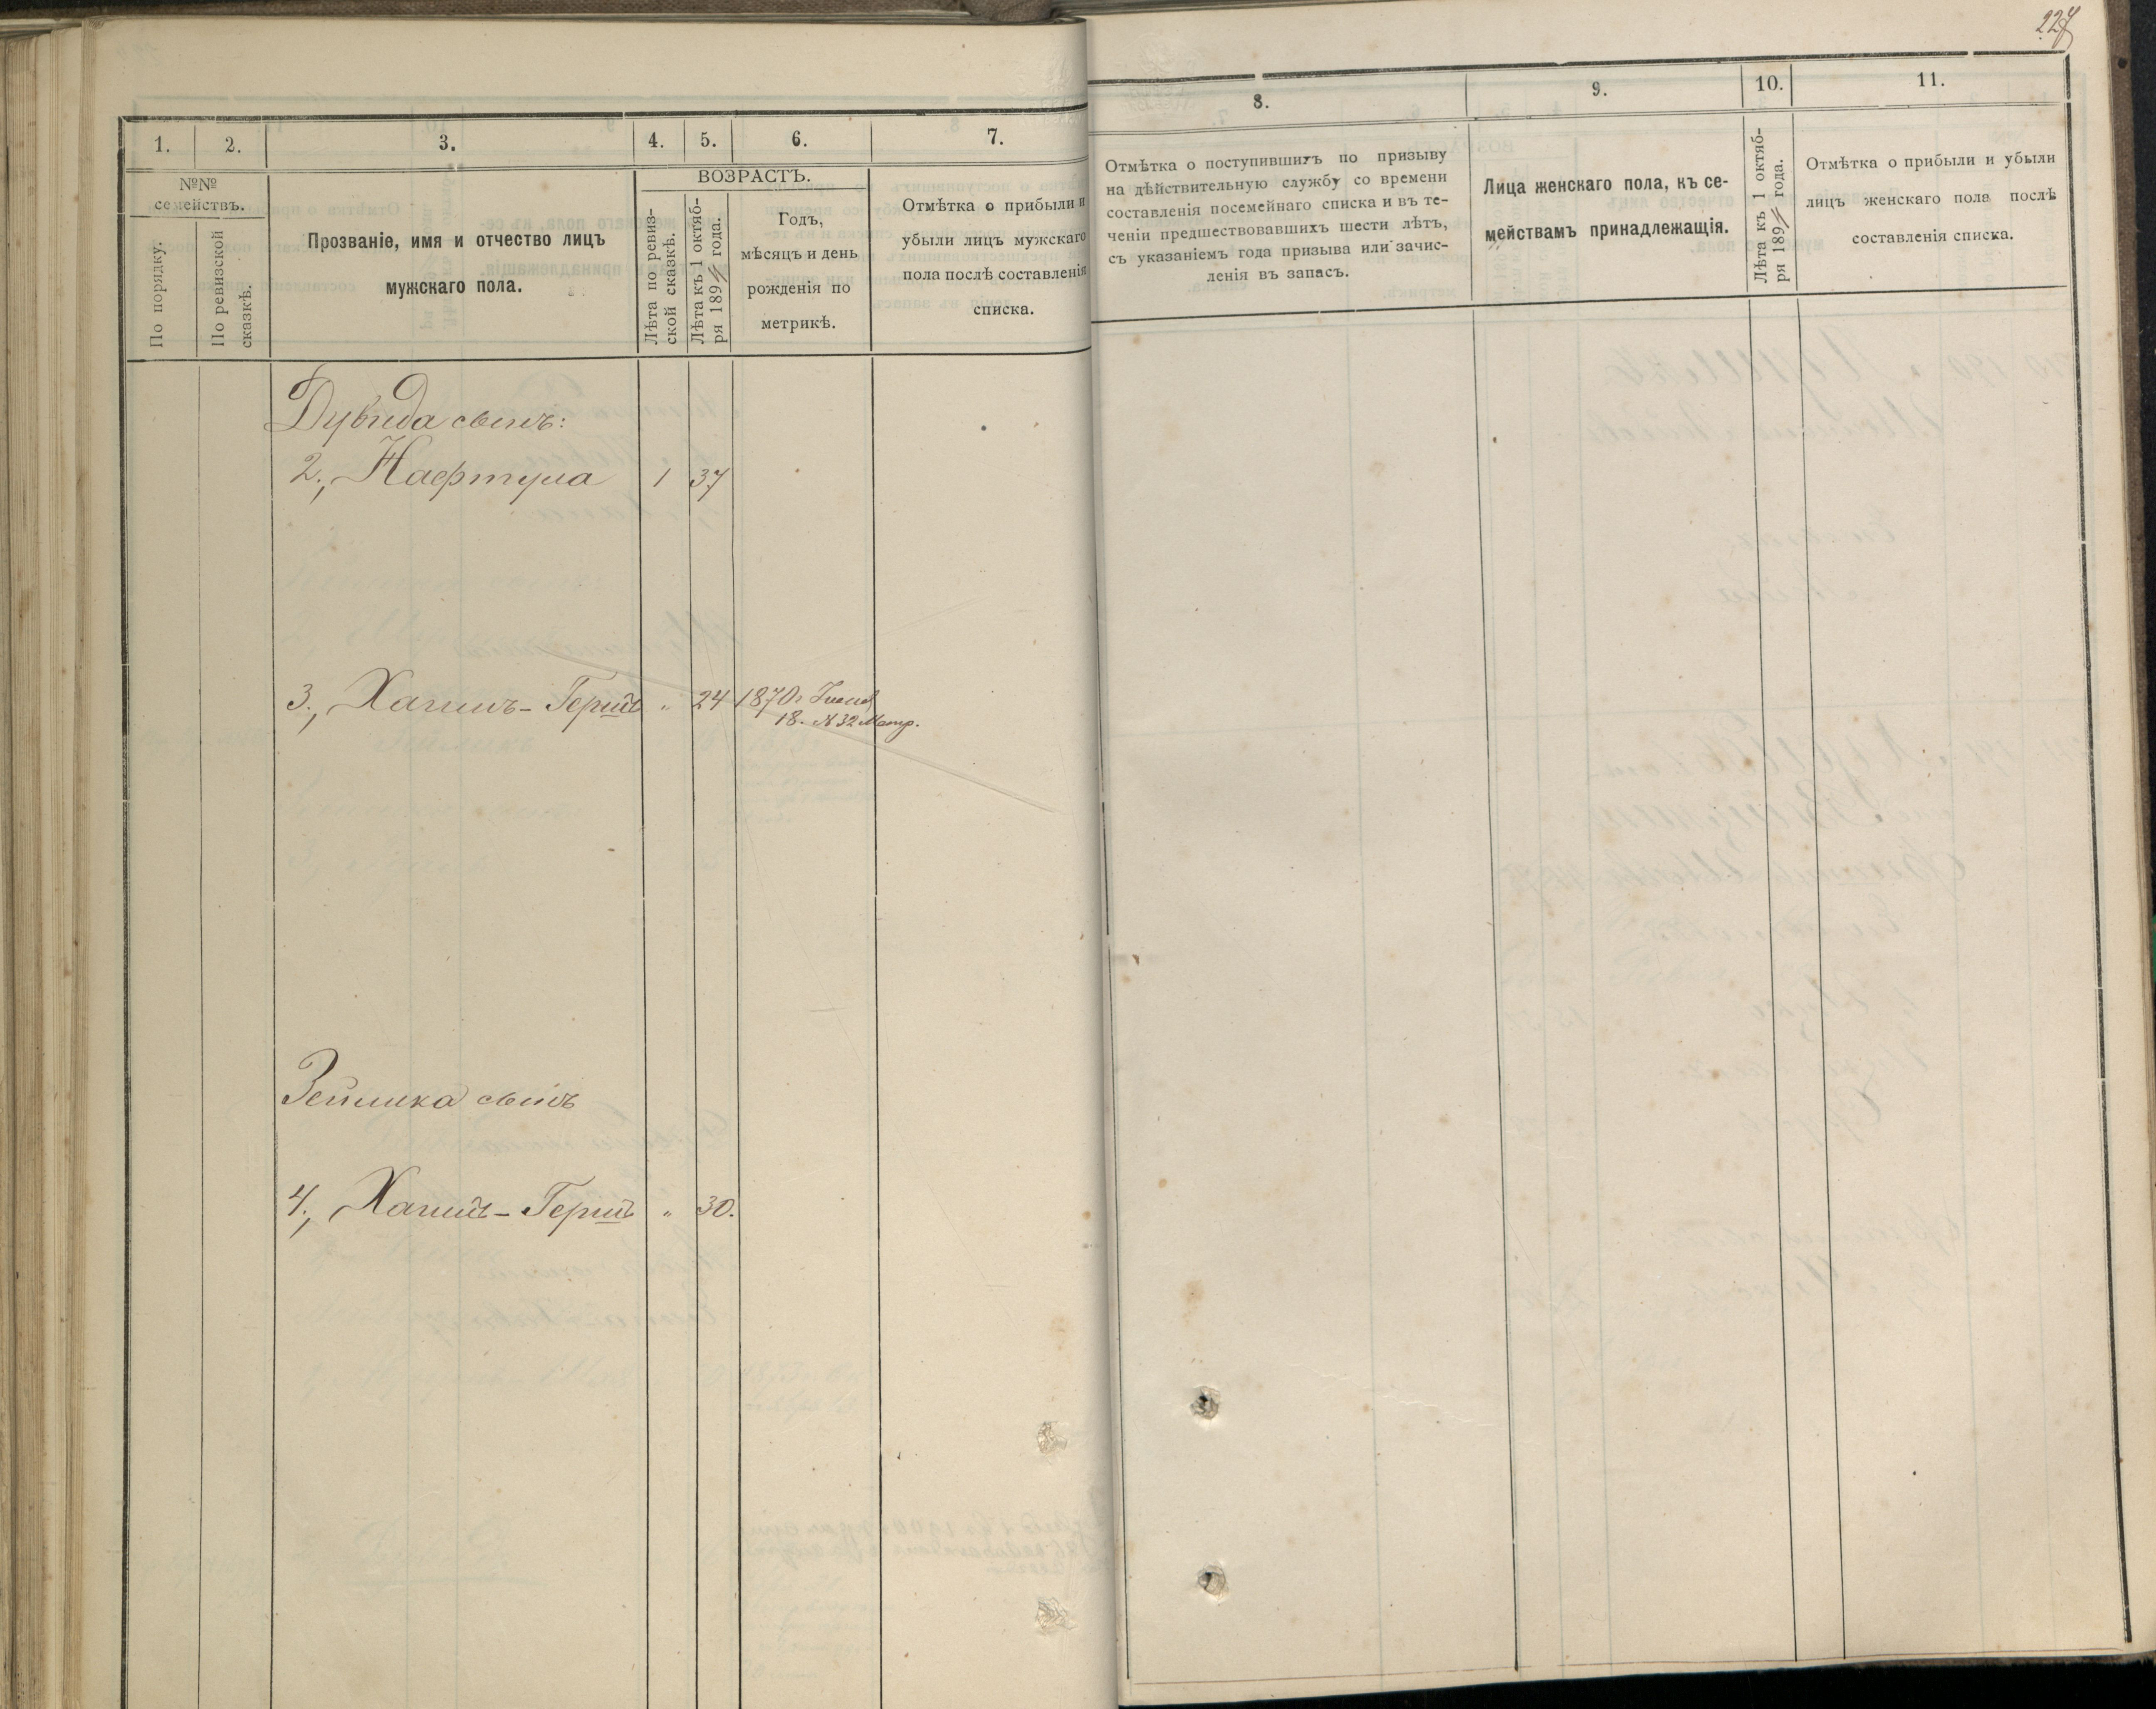 227
1.
2.
3.
4.
5.
6.
7.
8.
9.
10.
11.
№№
семействъ.
По порядку.
По ревизской
сказкѣ.
Прозваніе, имя и отчество лицъ
мужскаго пола.
ВОЗРАСТЪ.
Лѣта по ревиз-
ской сказкѣ.
Лѣта къ 1 октяб-
ря 1894 года.
Годъ,
мѣсяцъ и день
рожденія по
метрикѣ.
Отмѣтка о прибыли и
убыли лицъ мужскаго
пола послѣ составленія
списка.
Отмѣтка о поступившихъ по призыву
на дѣйствительную службу со времени
составленія посемейнаго списка и въ те-
ченіи предшествовавшихъ шести лѣтъ,
съ указаніемъ года призыва или зачис-
ленія въ запасъ.
Лица женскаго пола, къ се-
мействамъ принадлежащія.
Лѣта къ 1 октяб-
ря 1894 года.
Отмѣтка о прибыли и убыли
лицъ женскаго пола послѣ
составленія списка.
Дувида сынъ:
2., Нафтула 1 37
3., Хаимъ-Гершъ " 24 1870г
18. №32 Метр.
Зейлика сынъ
4., Хаимъ-Гершъ " 30.